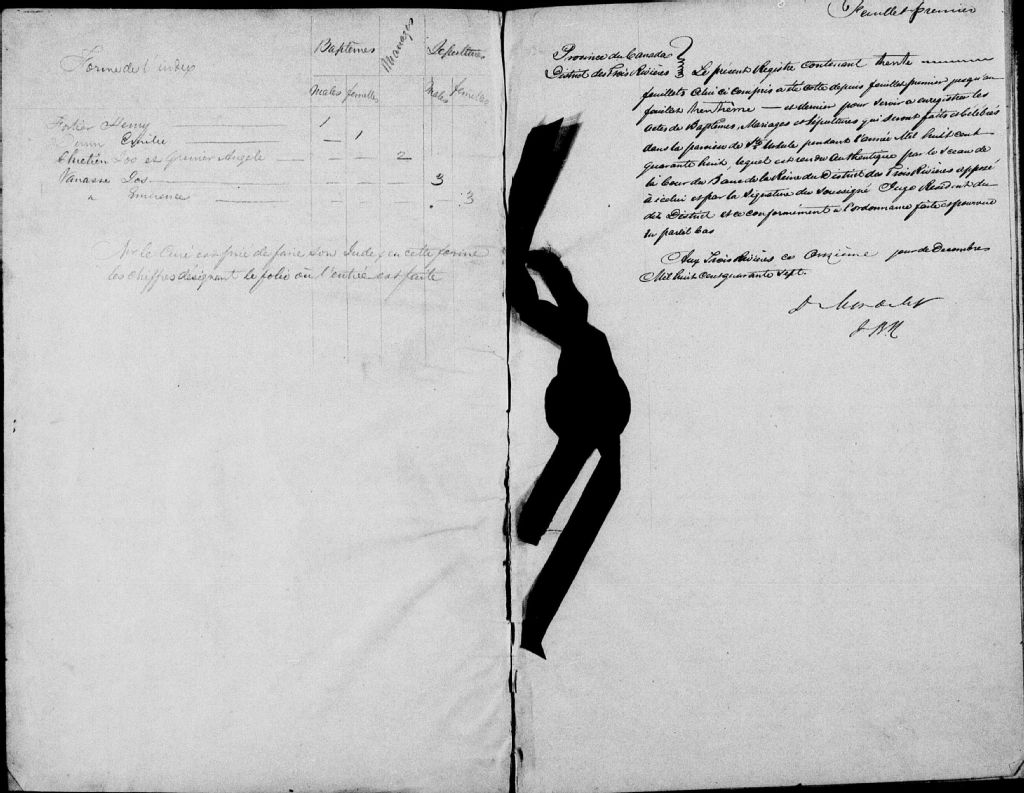 Forme de l'index
Baptêmes Mariages Sépultures
Males femelles Males femelles
Fortier Henry — 1
Emilie — 1
Chretien Leo et Grenier Angele — — — 2
Vanasse Jos — — — 3
" Emérence — — — . 3
Mr le Curé est prié de faire son Index en cette forme
les chiffres désignant le folio où l'entrée est faite
Feuillet premier
Province du Canada
District des Trois Rivières
Le présent Registre contenant trente
feuillets celui ci compris a été coté depuis feuillet premier jusqu'au
feuillet trentième — et dernier pour servir a enregistrer les
Actes de Baptêmes, Mariages et Sépultures qui seront faits et célébrés
dans la paroisse de Ste Ursule pendant l'année Mil huit cent
quarante huit, lequel est rendu authentique par le Sceau de
la Cour du Banc de la Reine du District des Trois Rivières apposé
à icelui et par la Signature du Soussigné Juge Résident du
dit District et ce conformément a l'ordonnance faite et pourvue
en pareil cas
Aux Trois Rivières ce onzième jour de Decembre
Mil huit Cent quarante Sept.
D. Mondelet
J B R